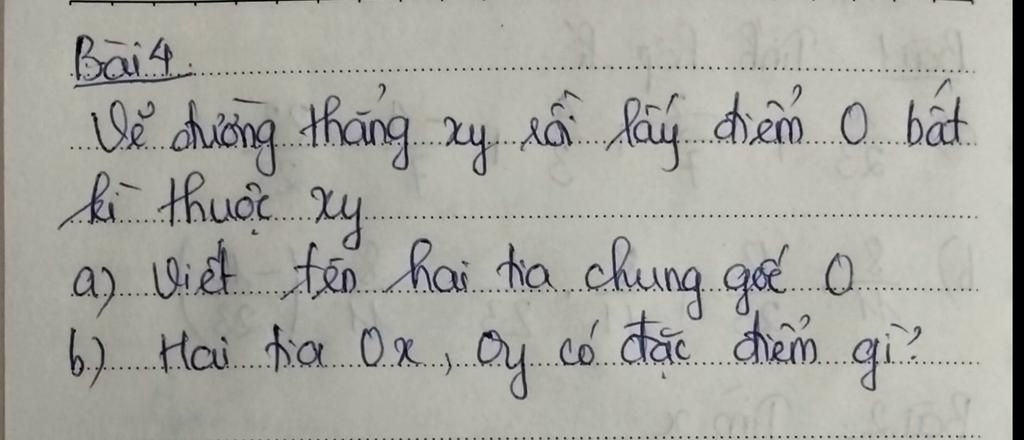 Bài 4.
Vẽ đường thẳng xy rồi lấy điểm O bất
kì thuộc xy
a) Viết tên hai tia chung gốc O
b) Hai tia Ox, Oy có đặc điểm gì?